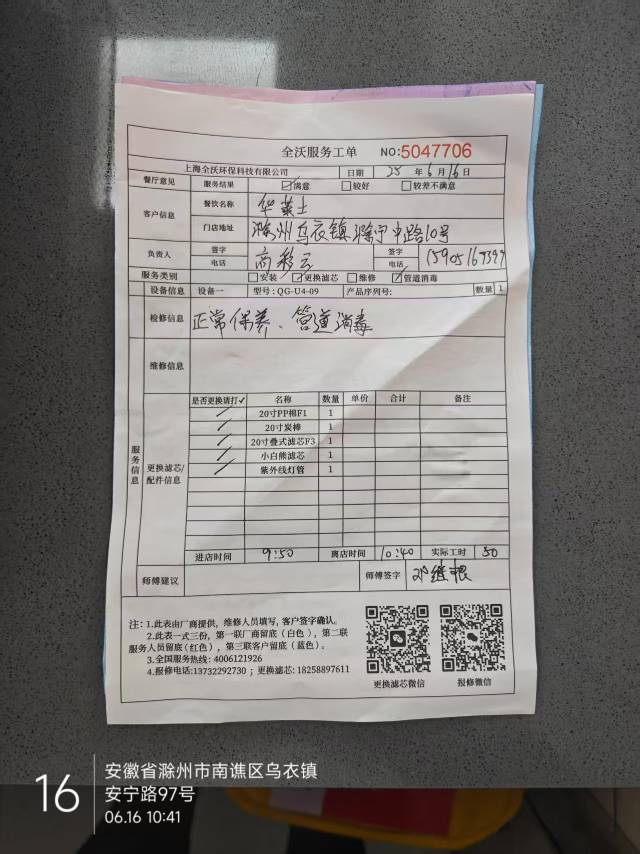 全沃服务工单 NO:5047706
上海全沃环保科技有限公司 日期 25 年 6 月 16 日
餐厅意见 服务结果 ☑满意 □较好 □较差不满意
客户信息 餐饮名称 华莱士
门店地址 滁州乌衣镇滁宁中路10号
负责人 签字 电话 商彩云 签字 电话
服务类别 □安装 ☑更换滤芯 □维修 ☑管道消毒
设备信息 设备一 型号:QG-U4-09 产品序列号: 数量 1
检修信息 正常保养、管道消毒
维修信息
服务信息
更换滤芯/配件信息
是否更换请打✓ 名称 数量 单价 合计 备注
20寸PP棉F1 1
20寸炭棒 1
20寸叠式滤芯F3 1
小白熊滤芯 1
紫外线灯管 1
进店时间 9:50 离店时间 10:40 实际工时 50
师傅建议 师傅签字 邓继根
注:1.此表由厂商提供,维修人员填写,客户签字确认。
2.此表一式三份,第一联厂商留底(白色),第二联
服务人员留底(红色),第三联客户留底(蓝色)。
3.全国服务热线:4006121926
4.报修电话:13732292730;更换滤芯:18258897611
更换滤芯微信 报修微信
16
安徽省滁州市南谯区乌衣镇
安宁路97号
06.16 10:41